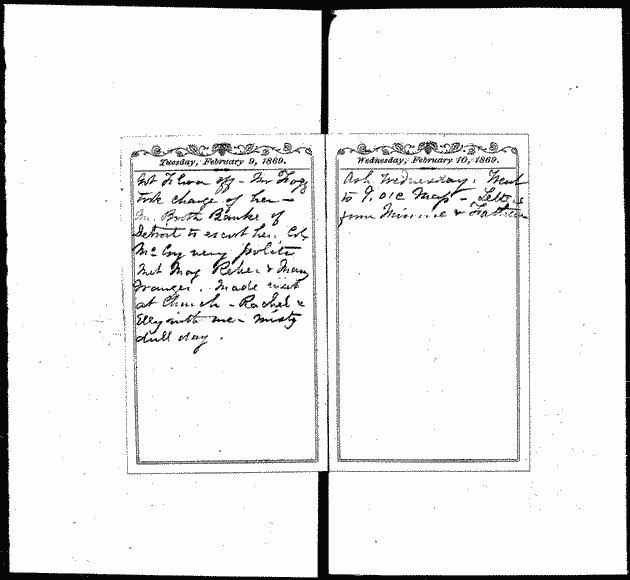 Tuesday, February 9, 1869.
Got off - Mr Fogg
took charge of her -
Broth Banks of
Detroit to escort her. Col
McCoy very polite
Met May Reber & Mary
Granger. Made visit
at Church - Rachel &
Elly with me - misty
dull day.
Wednesday, February 10, 1869.
Ash Wednesday. Went
to 7. o'c Mass - Letters
from Minnie & Father